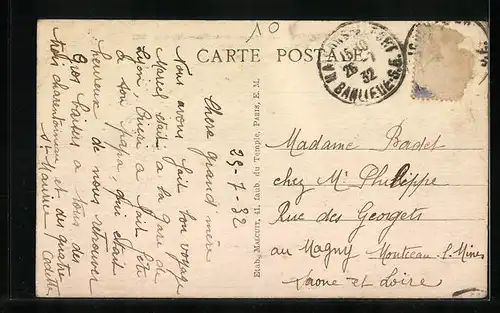 10
CARTE POSTALE
MAISONS-ALFORT
15 30
26-7
32
BANLIEUE-S.E.
29-7-32
Chère grand'mère
Nous avons fait bon voyage
Marcel était à la gare de
Lyon, Cricri a fait fête
à son papa, qui était
heureux de nous retrouver
Gros baisers à tous des
trois charentonneau et des quatre
St Maurice Odette
Etabl. MALCUIT, 41, faub. du Temple, PARIS, E. M.
Madame Badet
chez Mr Philippe
Rue des Georgets
au Magny Montceau l. Mines
Saone et Loire